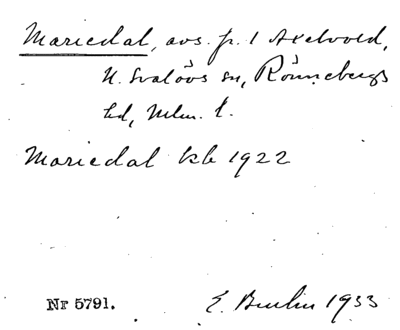 Mariedal, avs. fr. 1 Axelvold,
N. Svalövs sn, Rönnebergs
hd, Mlm. l.
Mariedal kb 1922
Nr 5791. E. 1933